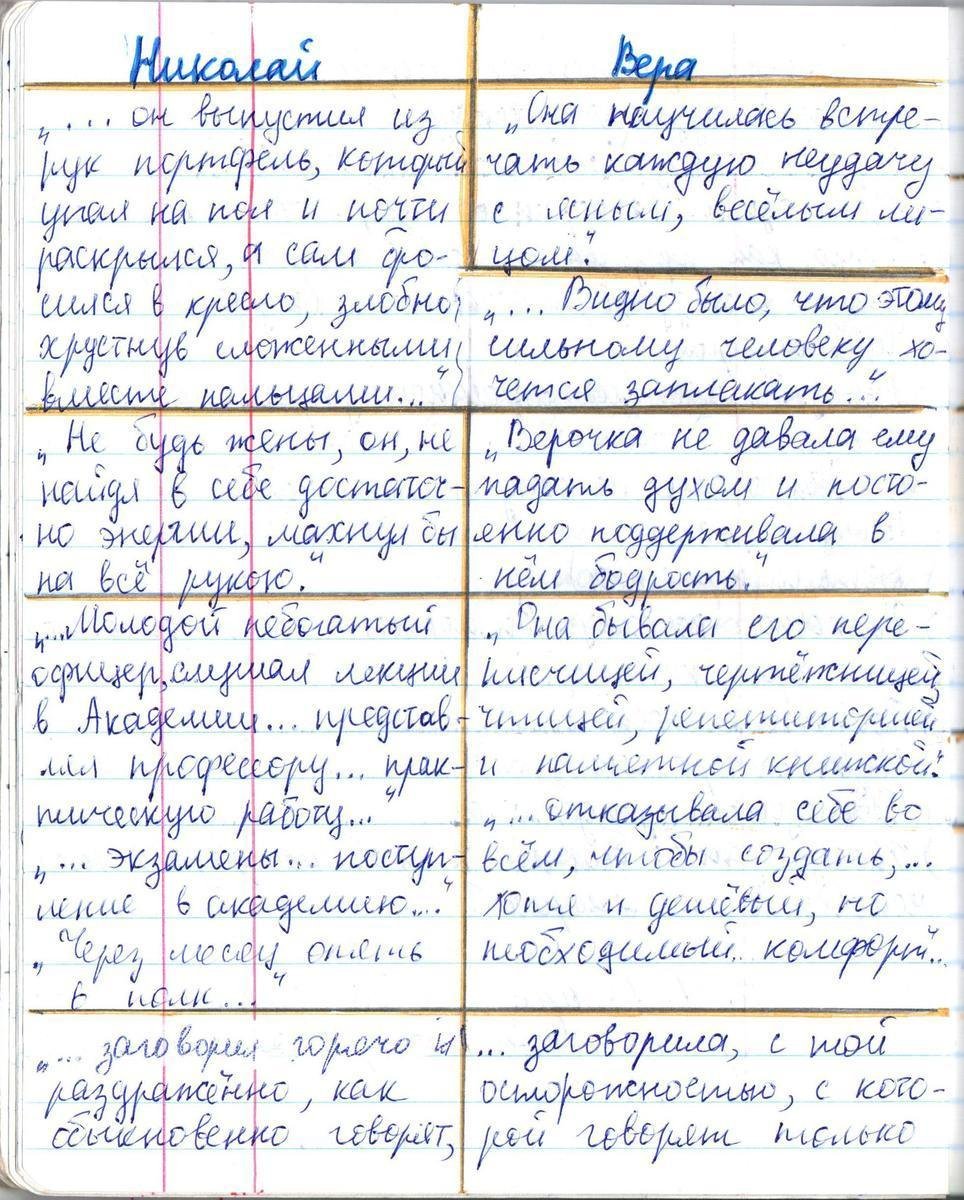 Николай
„... он выпустил из
рук портфель, который
упал на пол и почти
раскрылся, а сам бро-
сился в кресло, злобно
хрустнув сложенными
вместе пальцами..."
„Не будь жены, он, не
найдя в себе достаточ-
но энергии, махнул бы
на всё рукою."
„...Молодой небогатый
офицер, слушал лекции
в Академии... представ-
лял профессору... прак-
тическую работу..."
„... экзамены... поступ-
ление в академию..."
„Через месяц опять
в полк..."
„... заговорил горячо и
раздражённо, как
обыкновенно говорят,
Вера
„Она научилась встре-
чать каждую неудачу
с ясным, весёлым ли-
цом".
„... Видно было, что этому
сильному человеку хо-
чется заплакать..."
„Верочка не давала ему
падать духом и посто-
янно поддерживала в
нём бодрость."
„Она бывала его пере-
писчицей, чертёжницей,
чтицей, репетиторшей
и памятной книжкой".
„... отказывала себе во
всём, чтобы создать,...
хотя и дешёвый, но
необходимый.. комфорт"..
... заговорила, с той
осторожностью, с кото-
рой говорят только